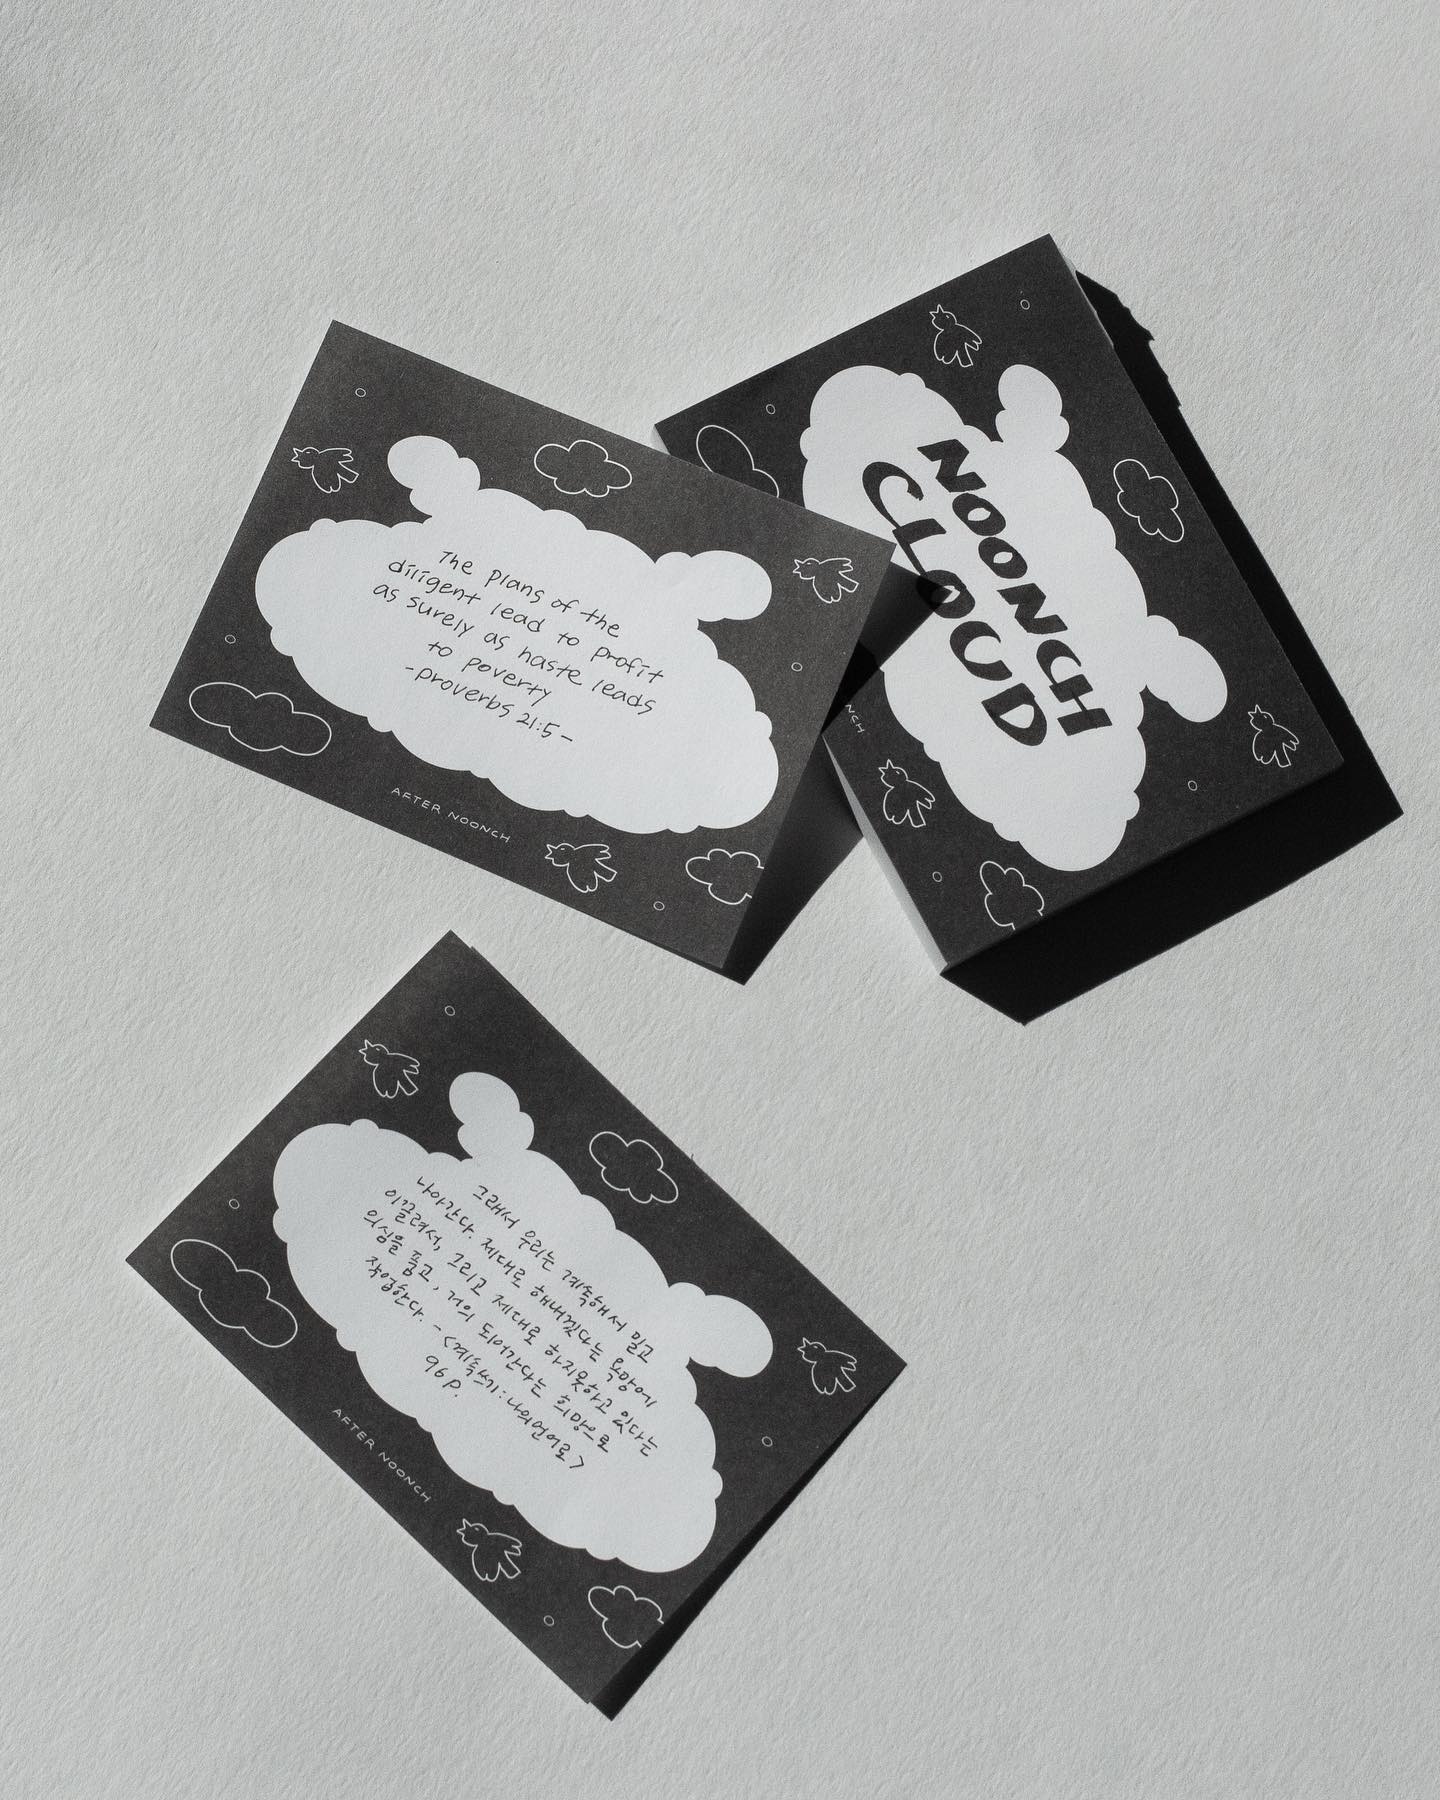 The plans of the
diligent lead to profit
as surely as haste leads
to poverty
-proverbs 21:5-
AFTER NOONCH
NOONCH
CLOUD
NCH
그래서 우리는 계속해서 밀고
나아간다. 제대로 해내겠다는 욕망에
이끌려서, 그리고 제대로 하지못하고 있다는
의심을 품고, 거의 되어간다는 희망으로
작업한다. - <계속쓰기:나의언어로>
96p.
AFTER NOONCH